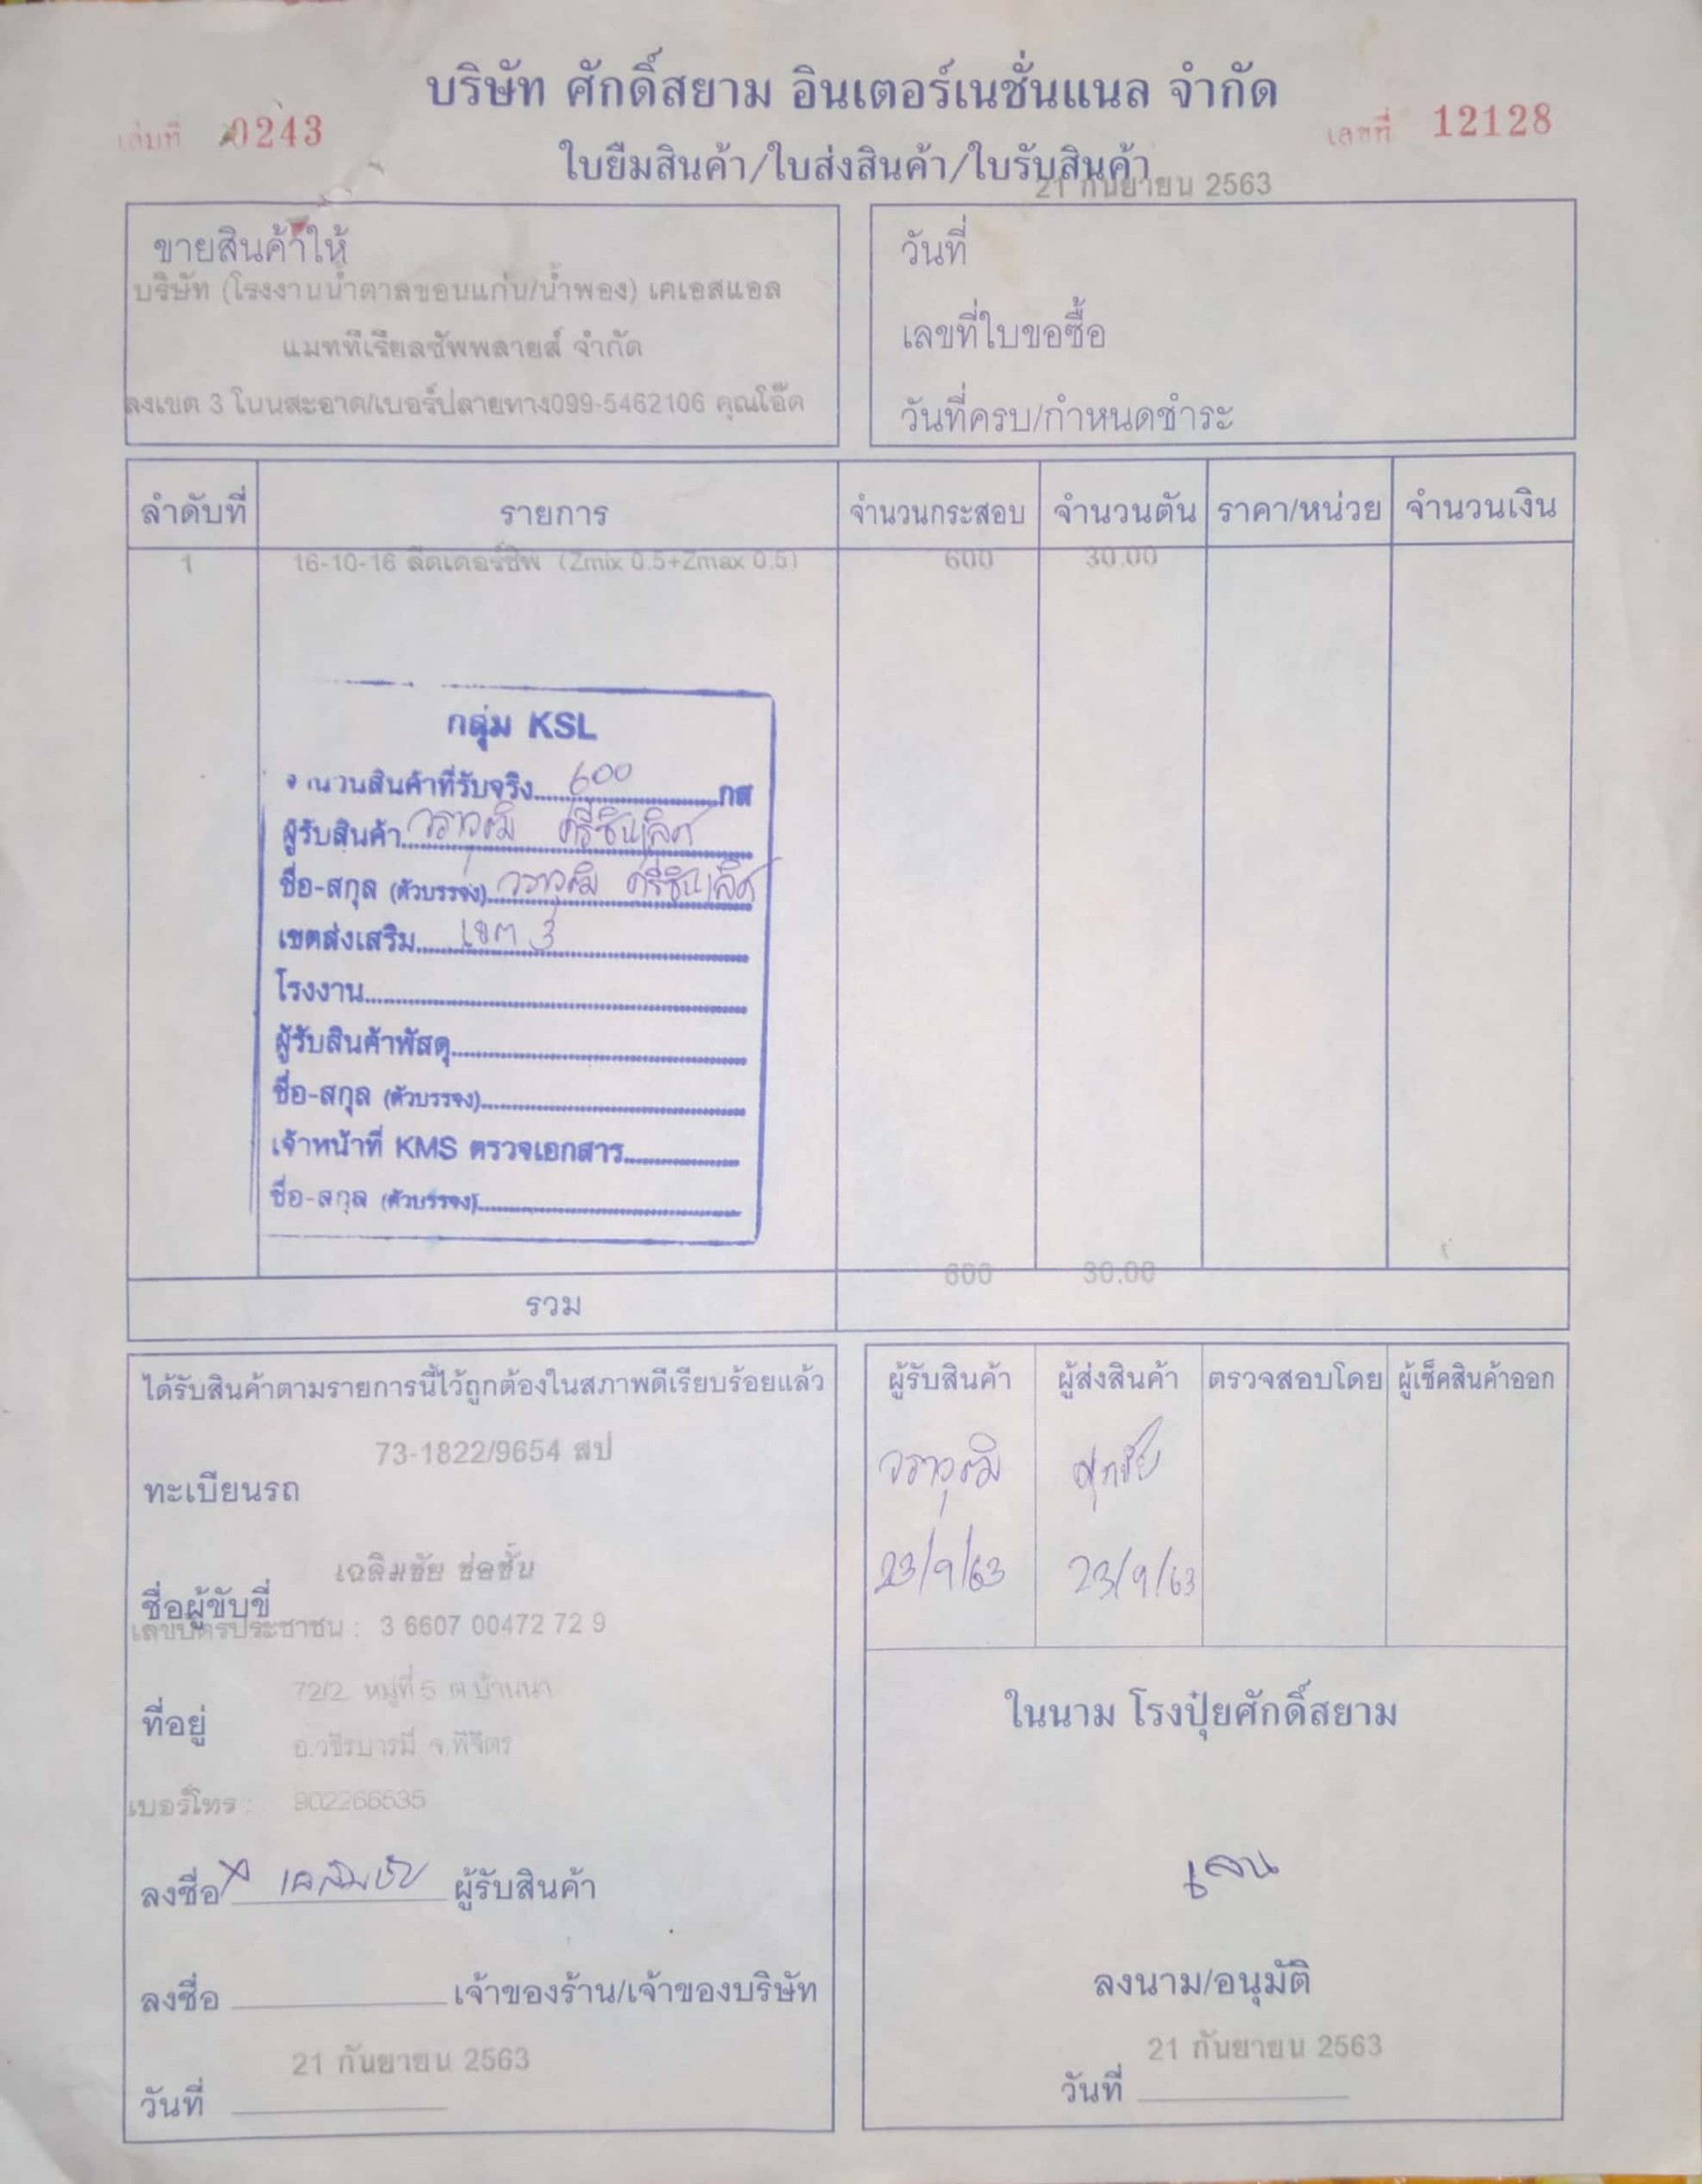 บริษัท ศักดิ์สยาม อินเตอร์เนชั่นแนล จำกัด
เล่มที่ 0243
เลขที่ 12128
ใบยืมสินค้า/ใบส่งสินค้า/ใบรับสินค้า
21 กันยายน 2563
ขายสินค้าให้
บริษัท (โรงงานน้ำตาลขอนแก่น/น้ำพอง) เคเอสแอล
แมททีเรียลซัพพลายส์ จำกัด
ลงเขต 3 โนนสะอาด/เบอร์ปลายทาง099-5462106 คุณโอ๊ต
วันที่
เลขที่ใบขอซื้อ
วันที่ครบ/กำหนดชำระ
ลำดับที่ รายการ จำนวนกระสอบ จำนวนตัน ราคา/หน่วย จำนวนเงิน
1 16-10-16 ลีดเดอร์ชิพ (Zmix 0.5+Zmax 0.5) 600 30.00
กลุ่ม KSL
จำนวนสินค้าที่รับจริง 600 กส
ผู้รับสินค้า วราวุฒิ ศรีชินเลิศ
ชื่อ-สกุล (ตัวบรรจง) วราวุฒิ ศรีชินเลิศ
เขตส่งเสริม เขต 3
โรงงาน
ผู้รับสินค้าพัสดุ
ชื่อ-สกุล (ตัวบรรจง)
เจ้าหน้าที่ KMS ตรวจเอกสาร
ชื่อ-สกุล (ตัวบรรจง)
รวม 600 30.00
ได้รับสินค้าตามรายการนี้ไว้ถูกต้องในสภาพดีเรียบร้อยแล้ว
73-1822/9654 สป
ทะเบียนรถ
เฉลิมชัย ช่อชั้น
ชื่อผู้ขับขี่
เลขบัตรประชาชน : 3 6607 00472 72 9
72/2 หมู่ที่ 5 ต.บ้านนา
ที่อยู่
อ.วชิรบารมี จ.พิจิตร
เบอร์โทร : 902266535
ลงชื่อ x เฉลิมชัย ผู้รับสินค้า
ลงชื่อ เจ้าของร้าน/เจ้าของบริษัท
21 กันยายน 2563
วันที่
ผู้รับสินค้า ผู้ส่งสินค้า ตรวจสอบโดย ผู้เช็คสินค้าออก
วราวุฒิ
23/9/63 23/9/63
ในนาม โรงปุ๋ยศักดิ์สยาม
ลงนาม/อนุมัติ
21 กันยายน 2563
วันที่